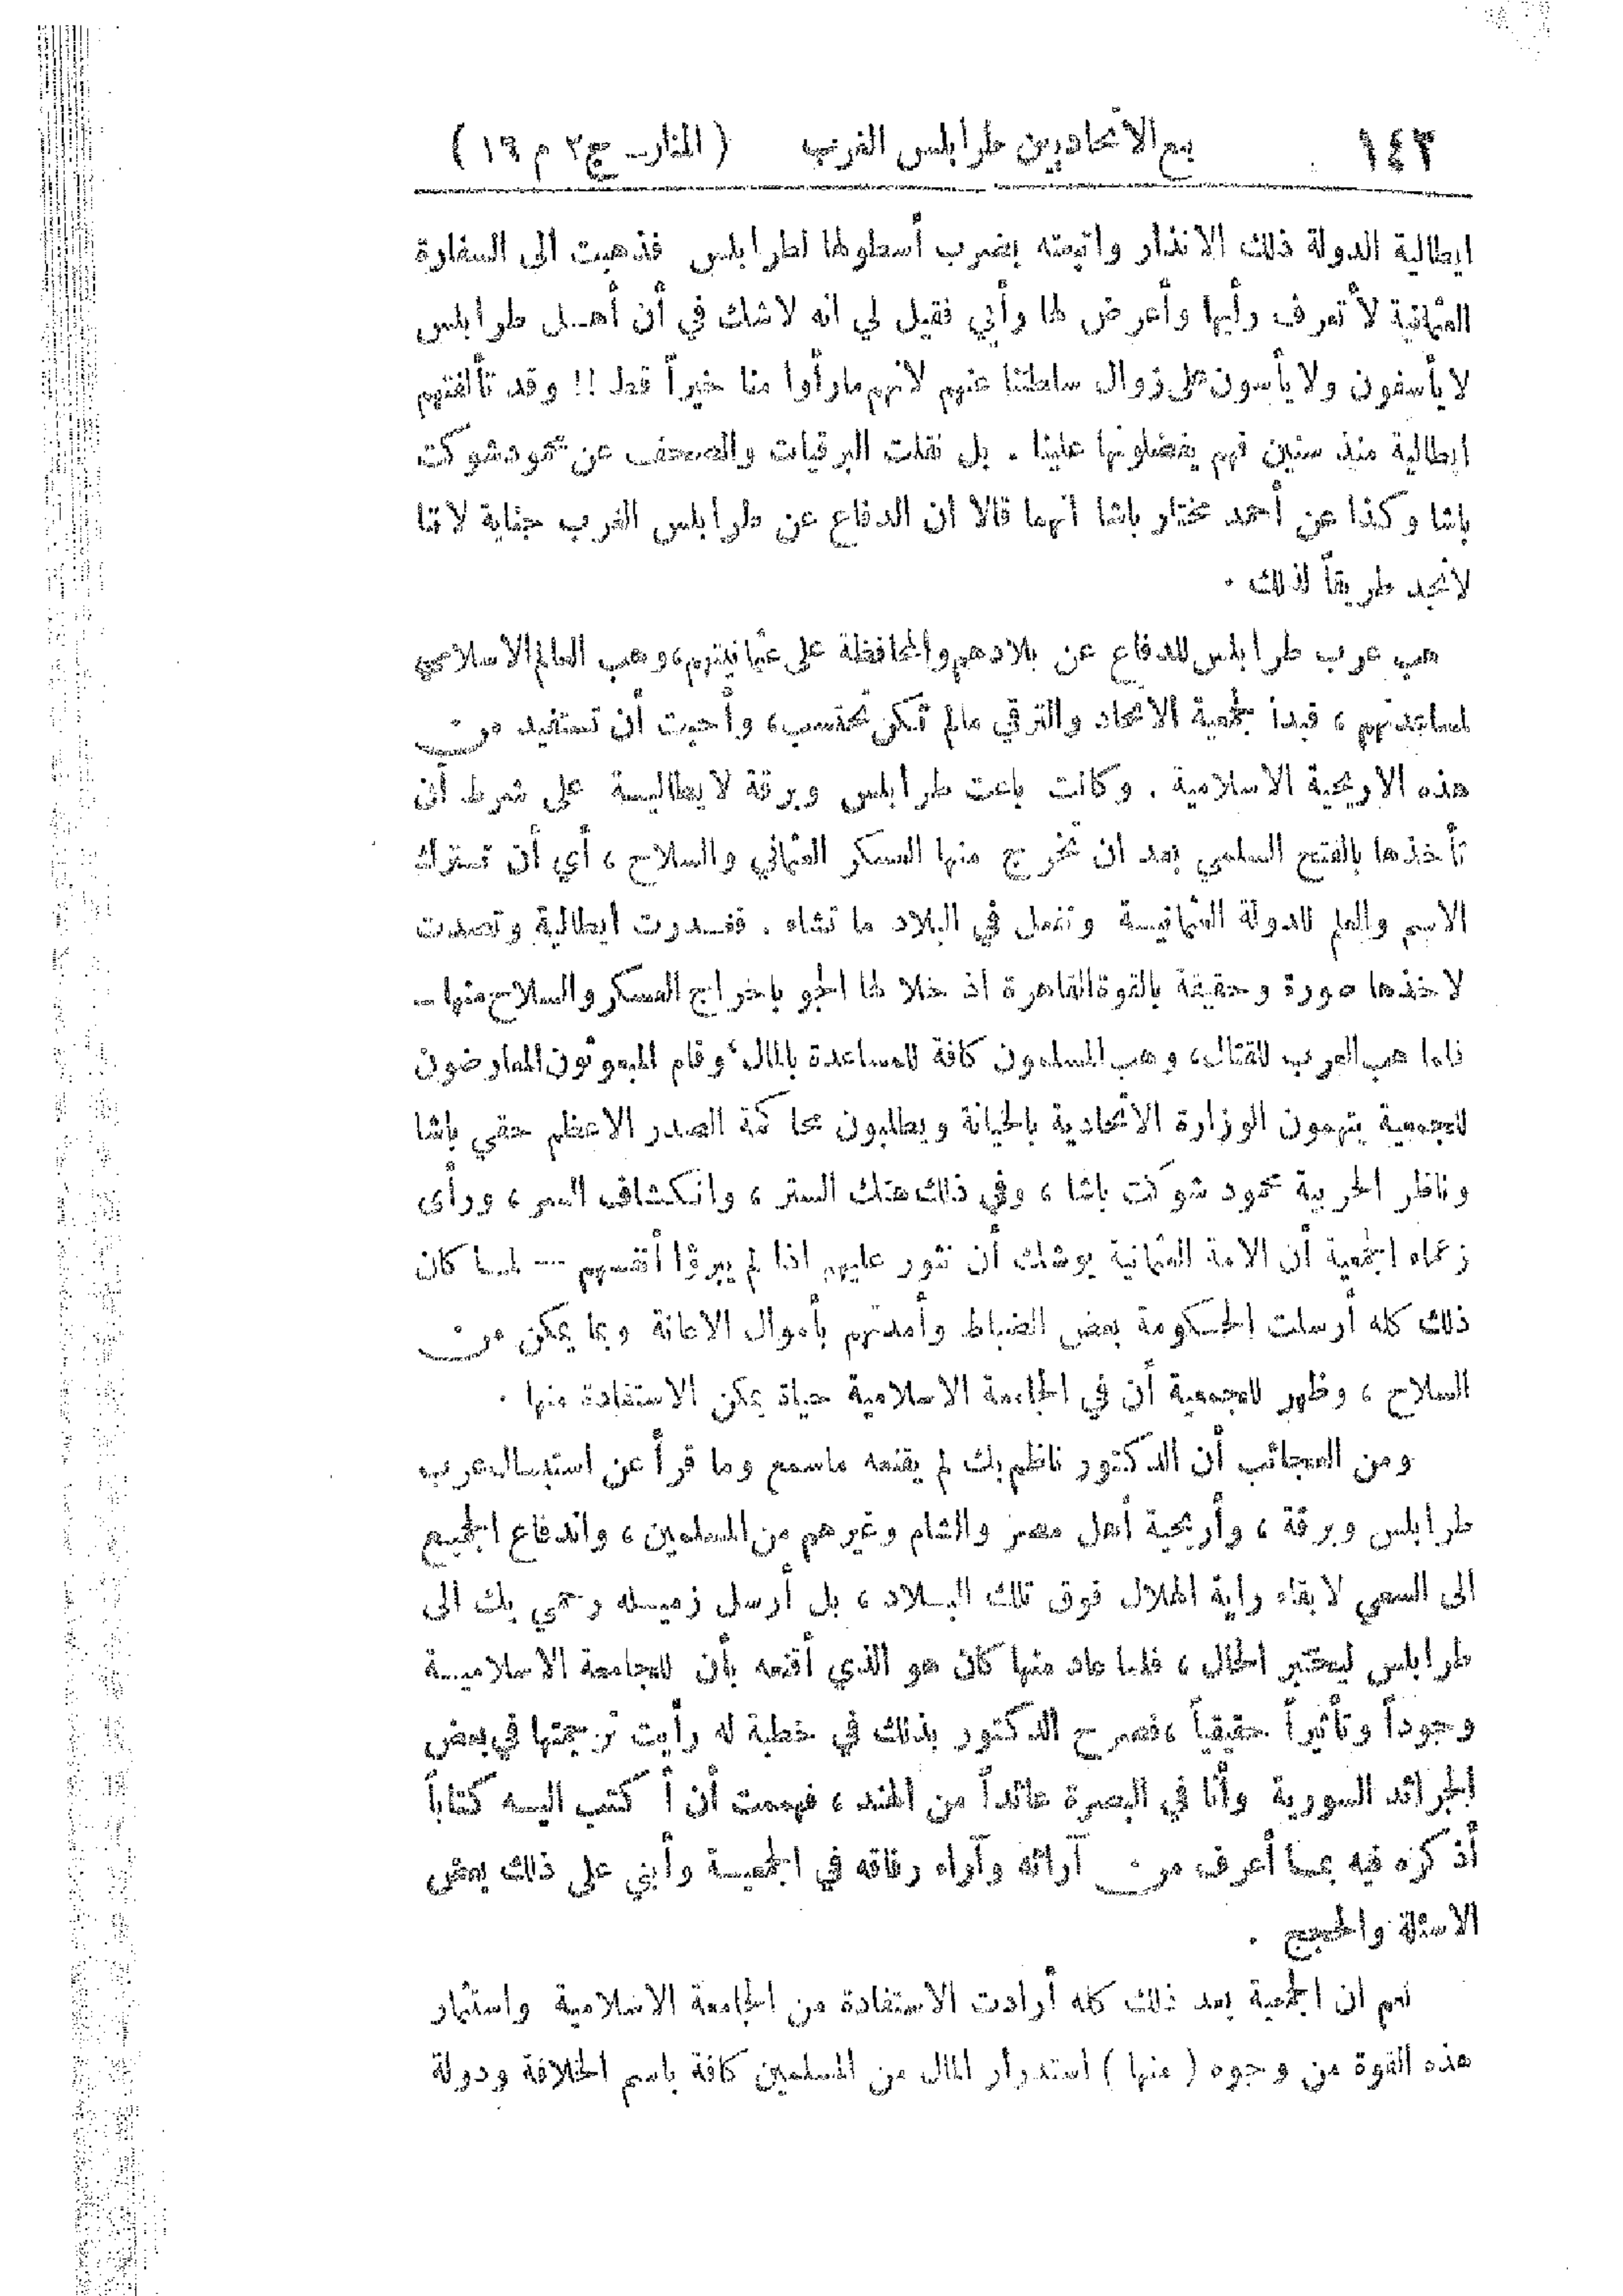 ١٤٢ بيع الاتحاديين طرابلس الغرب ( المنار ـ ج ٢ م ١٦ )
ايطالية الدولة ذلك الانذار واتبعته بضرب أسطولها لطرابلس فذهبت الى السفارة
العثمانية لأتعرف رأيها وأعرض لها رأيي فقيل لي انه لاشك في أن أهل طرابلس
لا يأسفون ولا يأسون على زوال سلطتنا عنهم لانهم مارأوا منا خيراً قط !! وقد تألفتهم
ايطالية منذ سنين فهم يفضلونها علينا . بل نقلت البرقيات والصحف عن محمود شوكت
باشا وكذا عن أحمد مختار باشا انهما قالا ان الدفاع عن طرابلس الغرب جناية لاننا
لانجد طريقاً لذلك .
هب عرب طرابلس للدفاع عن بلادهم والمحافظة على عثمانيتهم، وهب العالم الاسلامي
لمساعدتهم ، فبدا لجمعية الاتحاد والترقي مالم تكن تحتسب، وأحبت أن تستفيد من
هذه الاريحية الاسلامية . وكانت باعت طرابلس وبرقة لايطالية على شرط أن
تأخذها بالفتح السلمي بعد ان تخرج منها العسكر العثماني والسلاح ، أي أن تترك
الاسم والعلم للدولة العثمانية وتفعل في البلاد ما تشاء . فغدرت ايطالية وتصدت
لاخذها صورة وحقيقة بالقوة القاهرة اذ خلا لها الجو باخراج العسكر والسلاح منها ــ
فلما هب العرب للقتال، وهب المسلمون كافة للمساعدة بالمال، وقام المبعوثون المعارضون
للجمعية يتهمون الوزارة الاتحادية بالخيانة ويطلبون محاكمة الصدر الاعظم حقي باشا
وناظر الحربية محمود شوكت باشا ، وفي ذلك هتك الستر ، وانكشاف السر ، ورأى
زعماء الجمعية أن الامة العثمانية يوشك أن تثور عليهم اذا لم يبرؤا أنفسهم -- لما كان
ذلك كله أرسلت الحكومة بعض الضباط وأمدتهم بأموال الاعانة وبما يمكن من
السلاح ، وظهر للجمعية أن في الجامعة الاسلامية حياة يمكن الاستفادة منها .
ومن العجائب أن الدكتور ناظم بك لم يقنعه ماسمع وما قرأ عن استبسال عرب
طرابلس وبرقة ، وأريحية أهل مصر والشام وغيرهم من المسلمين ، واندفاع الجميع
الى السعي لابقاء راية الهلال فوق تلك البلاد ، بل أرسل زميله رحمي بك الى
طرابلس ليختبر الحال ، فلما عاد منها كان هو الذي أقنعه بأن للجامعة الاسلامية
وجوداً وتأثيراً حقيقياً ، فصرح الدكتور بذلك في خطبة له رأيت ترجمتها في بعض
الجرائد السورية وأنا في البصرة عائداً من الهند ، فهممت أن أكتب اليه كتاباً
أذكره فيه بما أعرف من آرائه وآراء رفاقه في الجمعية وأبني على ذلك بعض
الاسئلة والحجج .
نعم ان الجمعية بعد ذلك كله أرادت الاستفادة من الجامعة الاسلامية واستثمار
هذه القوة من وجوه ( منها ) استدرار المال من المسلمين كافة باسم الخلافة ودولة